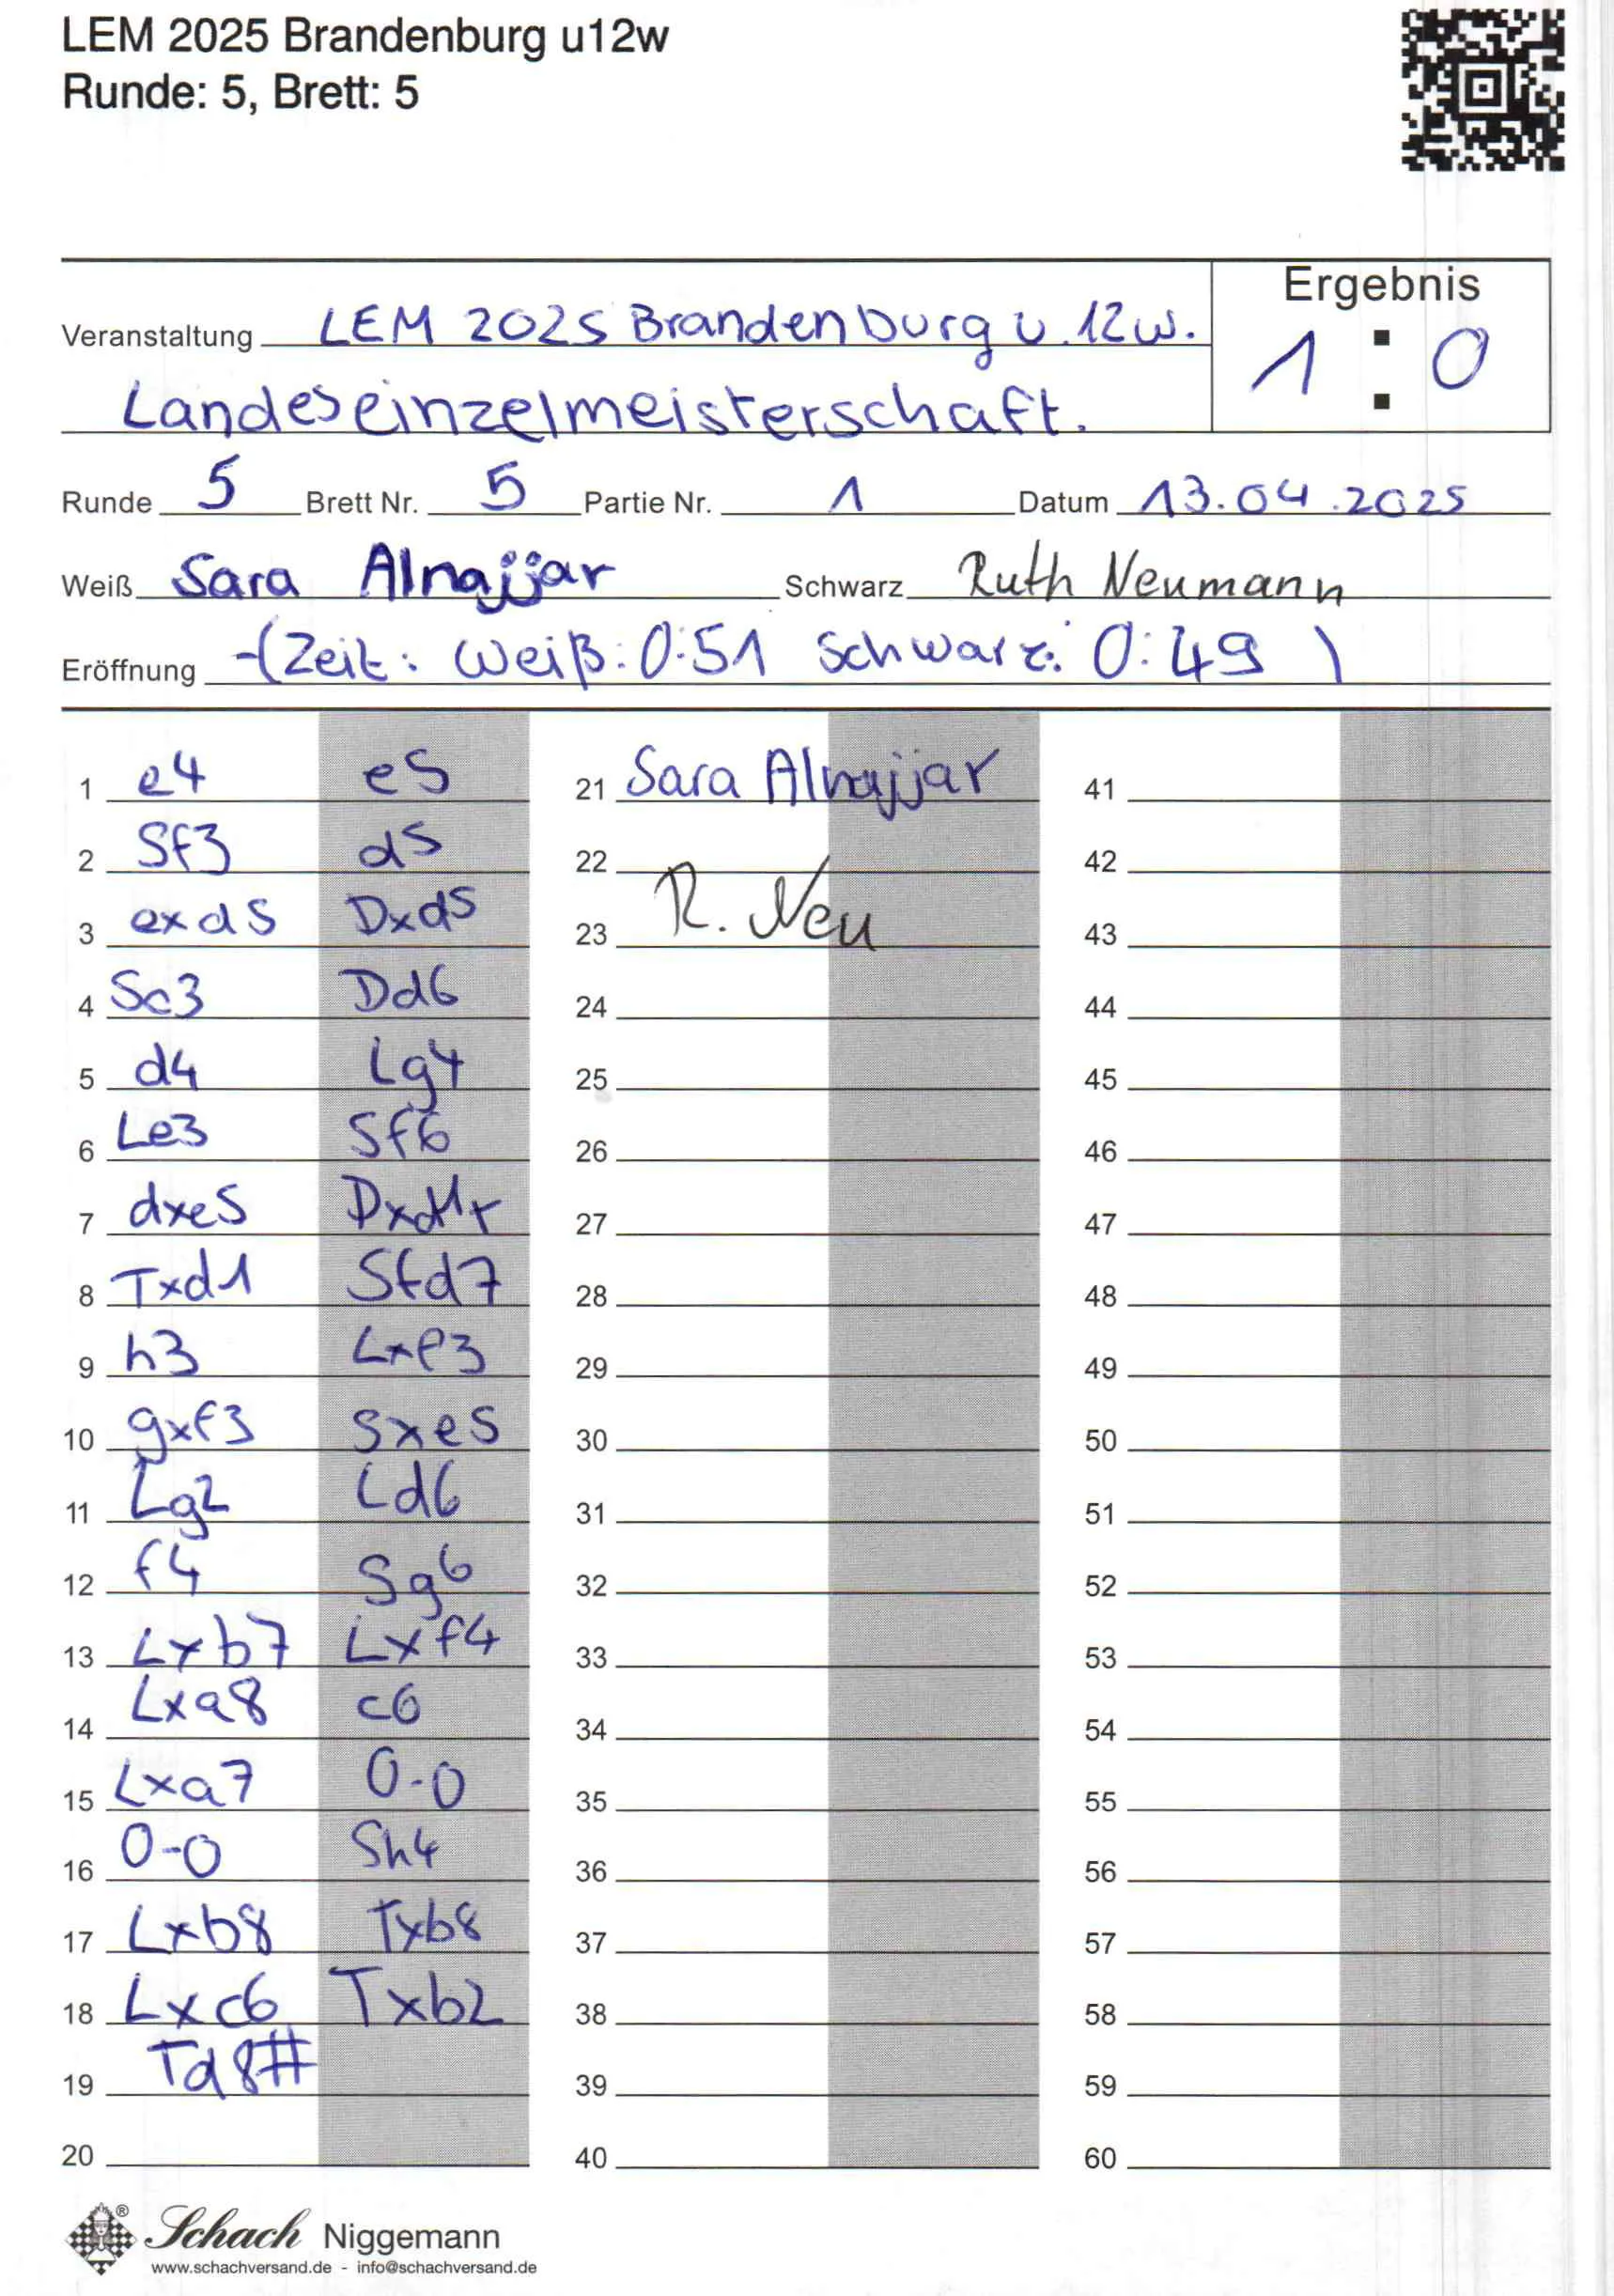 LEM 2025 Brandenburg u12w
Runde: 5, Brett: 5
Ergebnis
Veranstaltung LEM 2025 Brandenburg u.12w.
1 : 0
Landeseinzelmeisterschaft.
Runde 5 Brett Nr. 5 Partie Nr. 1 Datum 13.04.2025
Weiß Sara Alnajjar Schwarz Ruth Neumann
Eröffnung -(Zeit: Weiß: 0:51 Schwarz: 0:49)
1 e4 e5
2 Sf3 d5
3 exd5 Dxd5
4 Sc3 Dd6
5 d4 Lg4
6 Le3 Sf6
7 dxe5 Dxd1+
8 Txd1 Sfd7
9 h3 Lxf3
10 gxf3 Sxe5
11 Lg2 Ld6
12 f4 Sg6
13 Lxb7 Lxf4
14 Lxa8 c6
15 Lxa7 0-0
16 0-0 Sh4
17 Lxb8 Txb8
18 Lxc6 Txb2
19 Td8#
20
21 Sara Alnajjar
22
23 R. Neu
24
25
26
27
28
29
30
31
32
33
34
35
36
37
38
39
40
41
42
43
44
45
46
47
48
49
50
51
52
53
54
55
56
57
58
59
60
Schach Niggemann
www.schachversand.de - info@schachversand.de